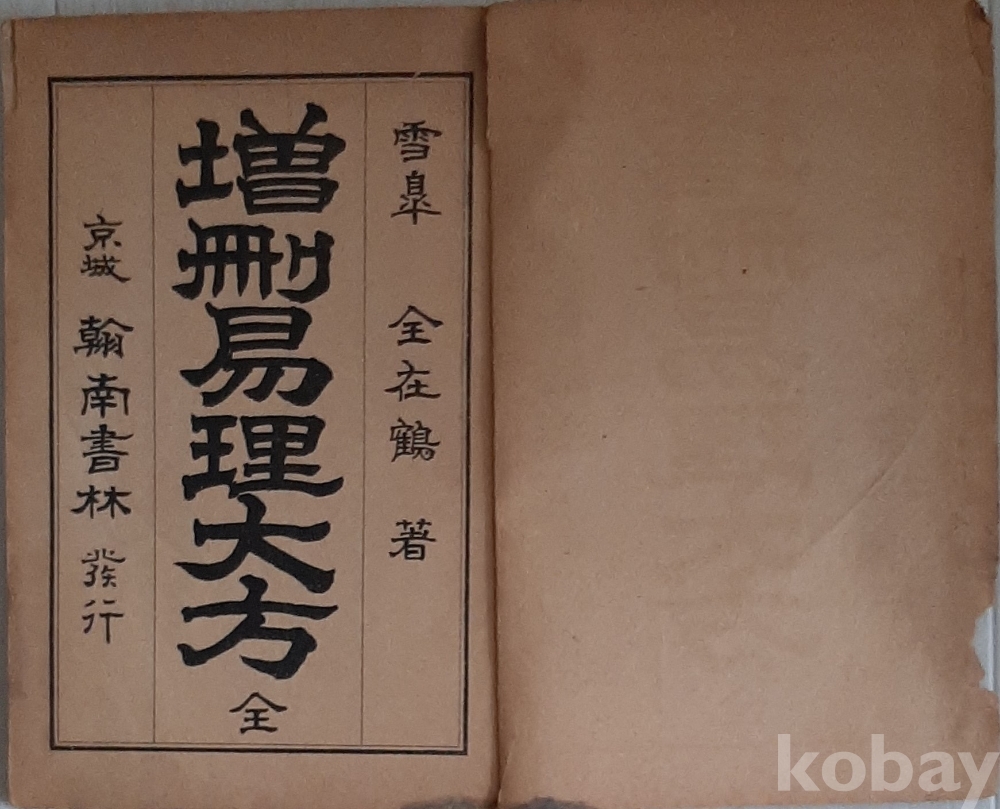 雪皐 全在鶴 著
增刪易理大方 全
京城 翰南書林 發行
kobay